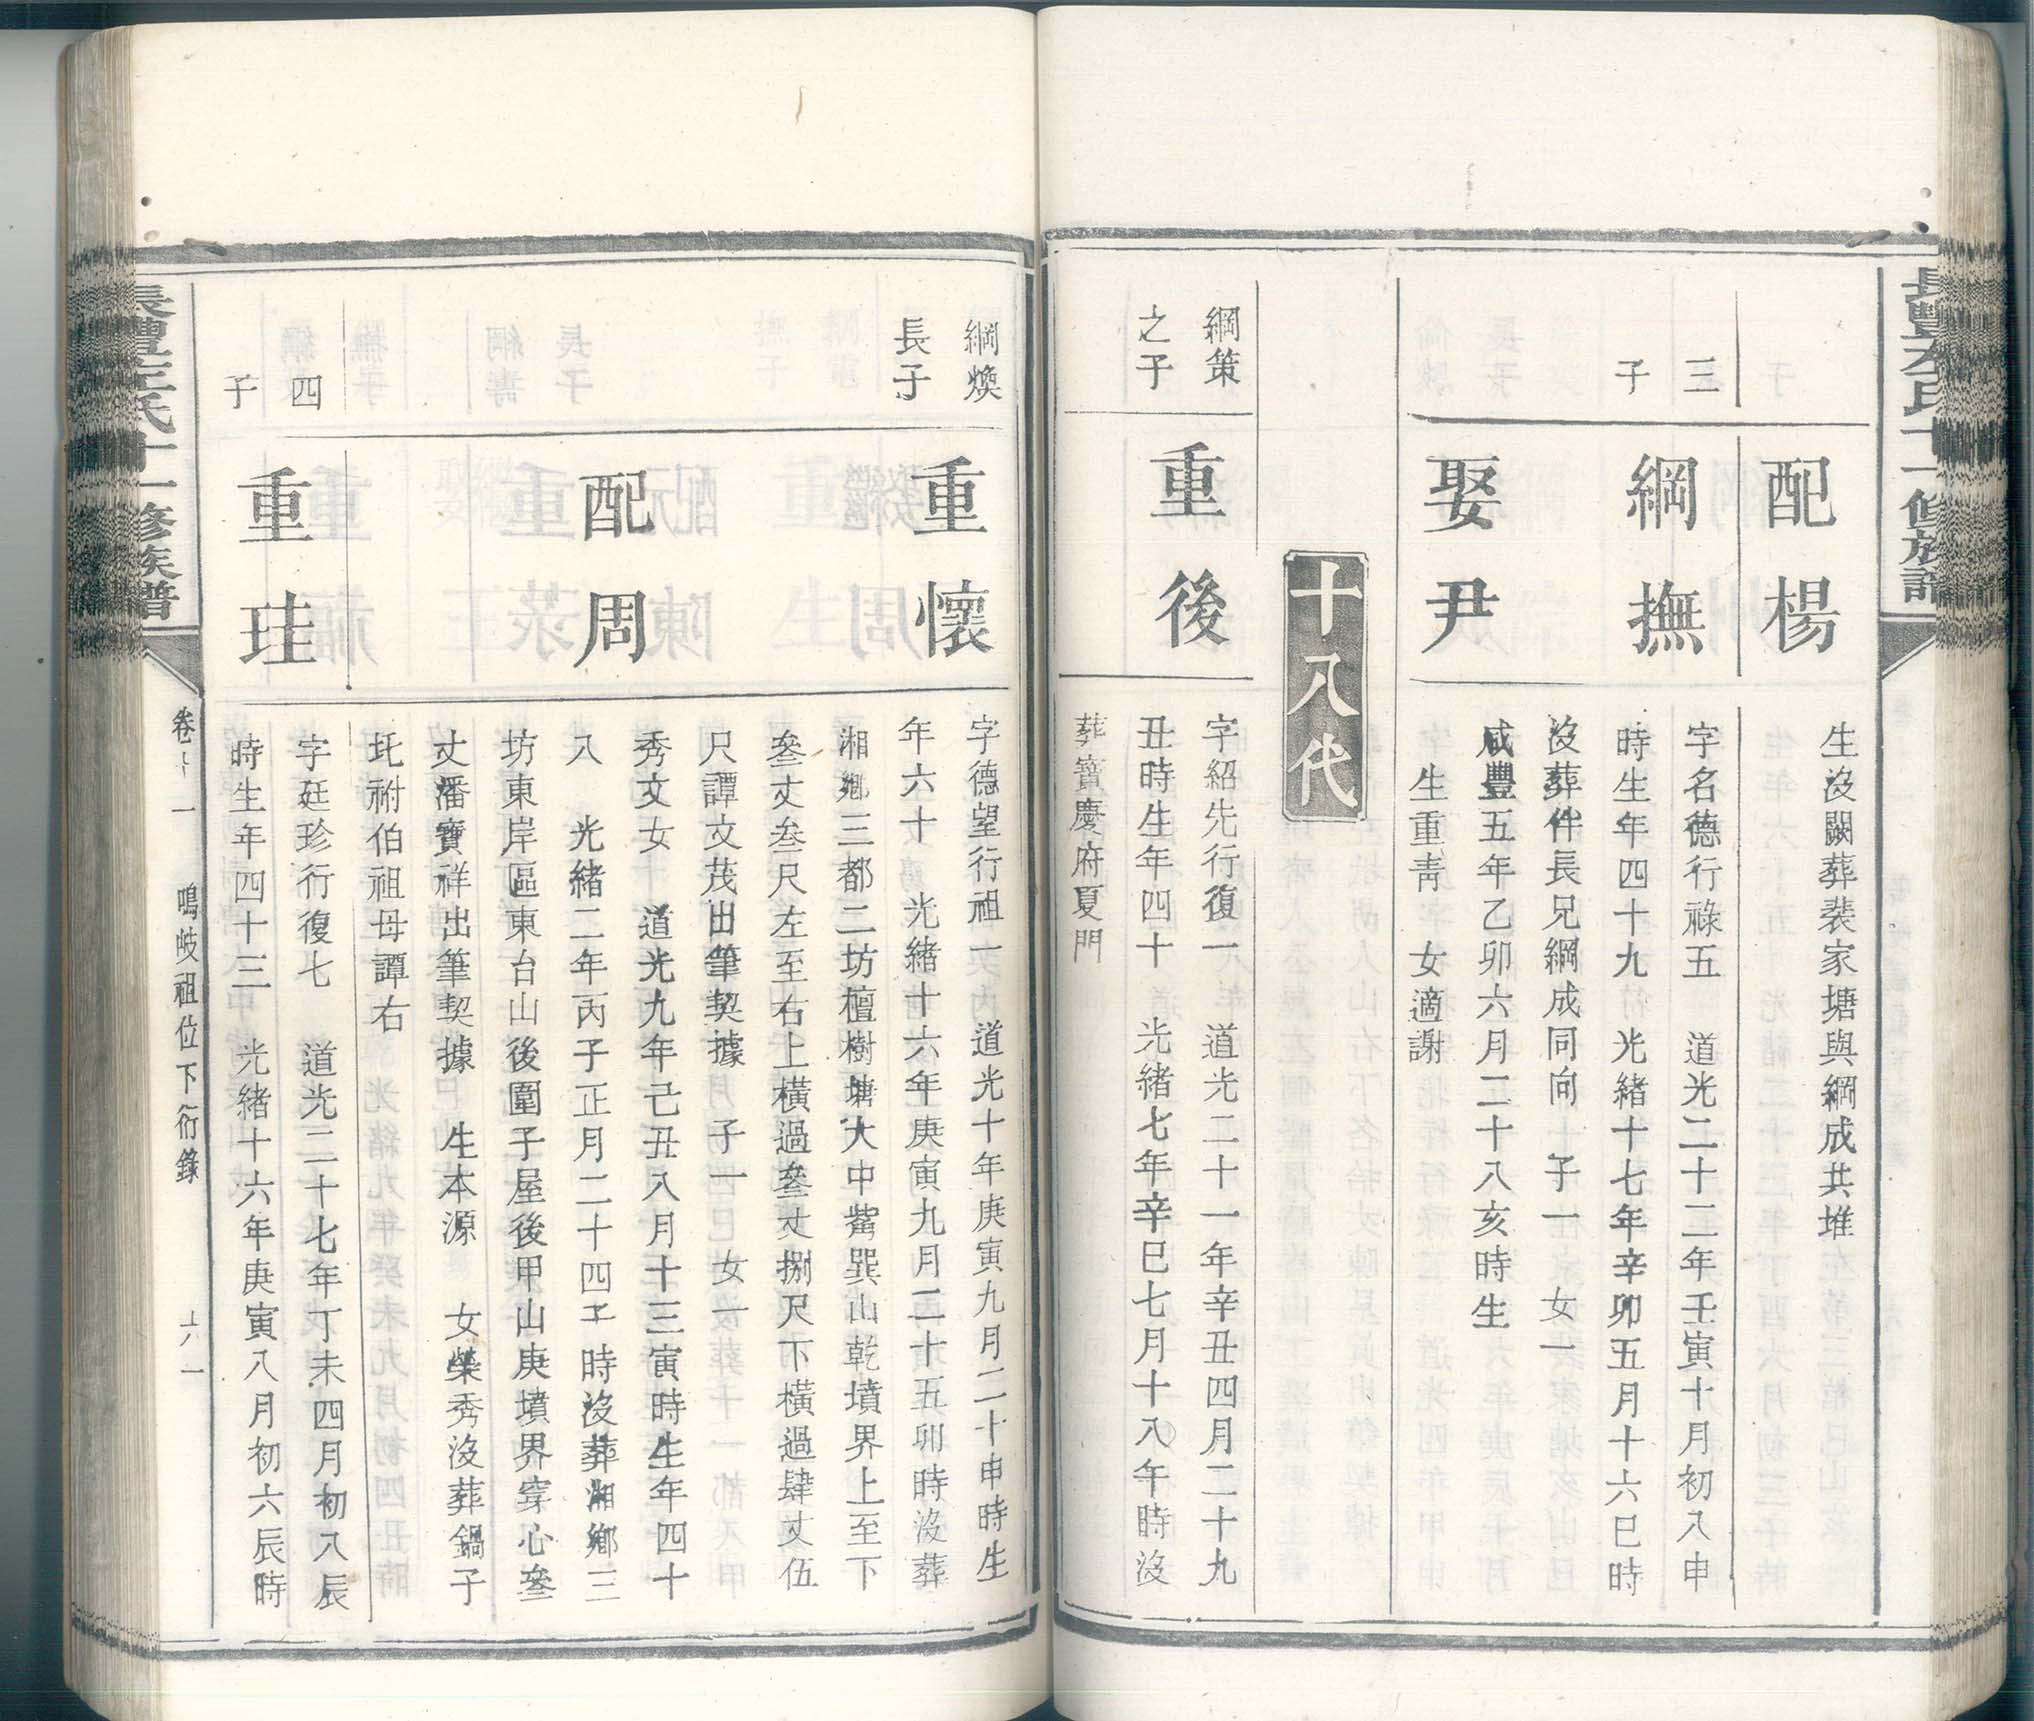 長豐左氏十一修族譜
配楊
生沒闕葬裴家塘與綱成共堆
三
子
綱撫
字名德行祿五　道光二十二年壬寅十月初八申
時生年四十九　光緒十七年辛卯五月十六巳時
沒葬伴長兄綱成同向　子一　女一
娶尹
咸豐五年乙卯六月二十八亥時生
生重青　女適謝
十八代
綱策
之子
重後
字紹先行復一　道光二十一年辛丑四月二十九
丑時生年四十　光緒七年辛巳七月十八午時沒
葬寶慶府夏門
綱煥
長子
重懷
字德望行祖一　道光十年庚寅九月二十申時生
年六十　光緒十六年庚寅九月二十五卯時沒葬
湘鄉三都二坊檀樹塘大中嘴巽山乾墳界上至下
叄丈叄尺左至右上橫過叄丈捌尺下橫過肆丈伍
尺譚文茂出筆契據　子一　女一
配周
秀文女　道光九年己丑八月十三寅時生年四十
八　光緒二年丙子正月二十四子時沒葬湘鄉三
坊東岸區東台山後圍子屋後甲山庚墳界穿心叄
丈潘寶祥出筆契據　生本源　女榮秀沒葬鍋子
圫祔伯祖母譚右
四
子
重珪
字廷珍行復七　道光二十七年丁未四月初八辰
時生年四十三　光緒十六年庚寅八月初六辰時
卷　一　鳴岐祖位下衍錄　六一
長豐左氏十一修族譜